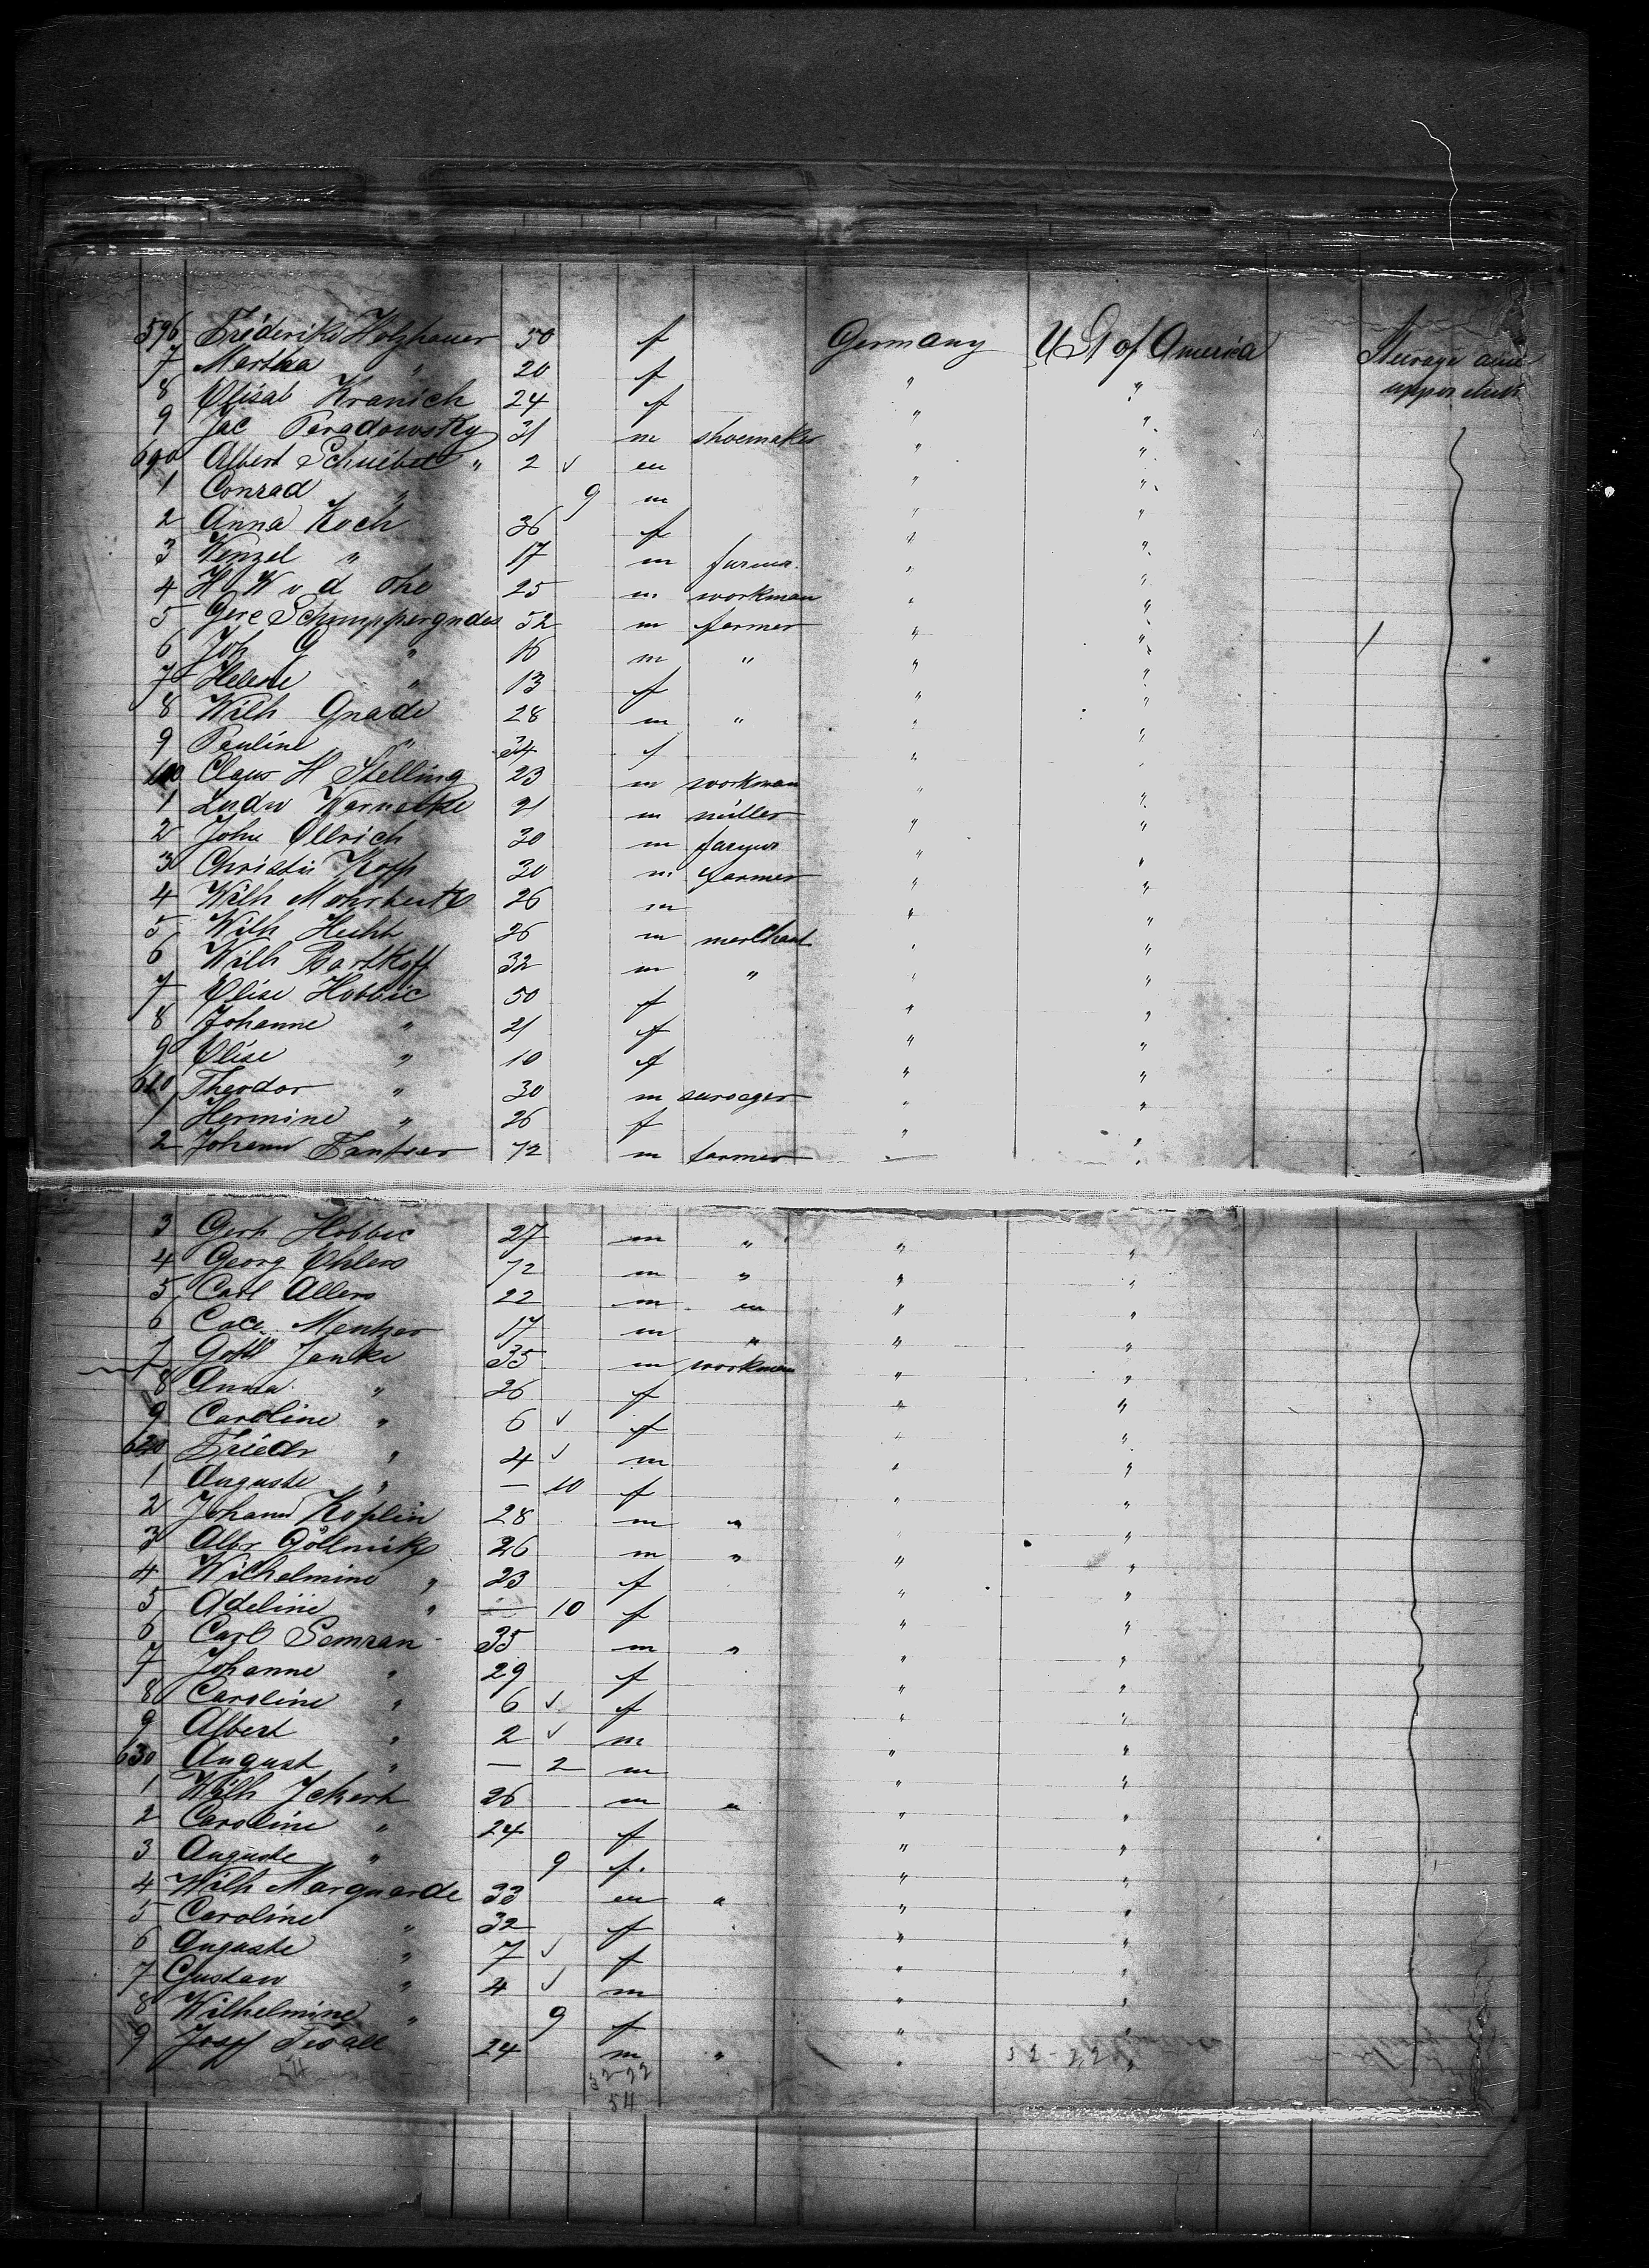 596 Friederike Holzhauer 50 f Germany U St of America Steerage and
7 Martha " 20 f " " upper deck
8 Elisab Kranich 24 f " "
9 Jac Peradowsky 31 m shoemaker " "
Albert Schuibel " 2 √ m " "
1 Conrad " 9 m " "
2 Anna Koch 36 f " "
3 Wenzel " 17 m farmer " "
4 H W v d Ohe 25 m workman " "
5 52 m farmer " "
6 Joh G " 16 m " " "
7 Helene " 13 f " "
8 Wilh Gnade 28 m " " "
9 Pauline " 34 f " "
600 Claus H Stelling 23 m workman " "
1 Ludw Warnecke 21 m miller " "
2 John Ollrich 30 m farmer " "
3 Christu Kopp 30 m farmer " "
4 Wilh 26 m " "
5 Wilh Hecht 26 m merchant " "
6 Wilh Bartkoff 32 m " " "
7 Elise Hobbie 50 f " "
8 Johanne " 21 f " "
9 Elise " 10 f " "
610 Theodor " 30 m " "
1 Hermine " 26 f " "
2 Johann 72 m farmer "
3 Gerh Hobbie 27 m " " "
4 Georg Ehlers 72 m " " "
5 Carl Allers 22 m " "
6 Mentzer 17 m " " "
7 Gottl Janke 35 m workman " "
8 Anna " 26 f " "
9 Caroline " 6 √ f " "
620 Friedr " 4 √ m " "
1 Auguste " — 10 f " "
2 Johann Koplin 28 m " " "
3 Albr Göllnick 26 m " " "
4 Wilhelmine " 23 f " "
5 Adeline " — 10 f " "
6 Carl Semran 35 m " " "
7 Johanne " 29 f " "
8 Caroline " 6 √ f " "
9 Albert " 2 √ m " "
630 August " — 2 m " "
1 Wilh Jckert 26 m " " "
2 Caroline " 24 f " "
3 Auguste " 9 f. " "
4 Wilh Marquarde 33 m " " "
5 Caroline " 32 f " "
6 Auguste " 7 √ f " "
7 Gustav " 4 √ m " "
8 Wilhelmine " 9 f " "
9 Josef 24 m " " "
32-22
32-22
54